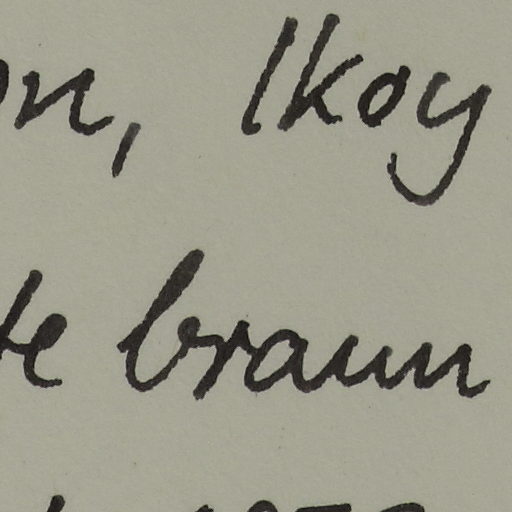 on, Ikoy
te braun